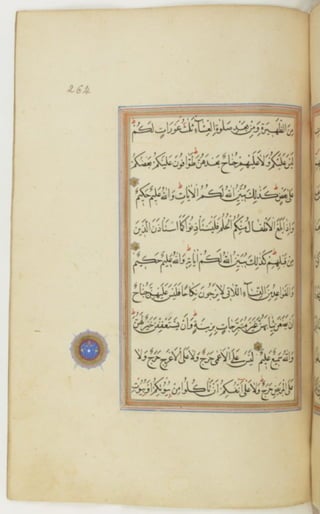 262
مِنَ الظَّهِيرَةِ وَمِنْ بَعْدِ صَلٰوةِ الْعِشَاءِ ثَلٰثُ عَوْرَاتٍ لَكُمْ
لَيْسَ عَلَيْكُمْ وَلَا عَلَيْهِمْ جُنَاحٌ بَعْدَهُنَّ طَوَّافُونَ عَلَيْكُمْ بَعْضُكُمْ
عَلٰى بَعْضٍ كَذٰلِكَ يُبَيِّنُ اللّٰهُ لَكُمُ الْاٰيَاتِ وَاللّٰهُ عَلِيمٌ حَكِيمٌ
وَاِذَا بَلَغَ الْاَطْفَالُ مِنْكُمُ الْحُلُمَ فَلْيَسْتَأْذِنُوا كَمَا اسْتَأْذَنَ الَّذِينَ
مِنْ قَبْلِهِمْ كَذٰلِكَ يُبَيِّنُ اللّٰهُ لَكُمْ اٰيَاتِهِ وَاللّٰهُ عَلِيمٌ حَكِيمٌ
وَالْقَوَاعِدُ مِنَ النِّسَاءِ اللَّاتِي لَا يَرْجُونَ نِكَاحًا فَلَيْسَ عَلَيْهِنَّ جُنَاحٌ
اَنْ يَضَعْنَ ثِيَابَهُنَّ غَيْرَ مُتَبَرِّجَاتٍ بِزِينَةٍ وَاَنْ يَسْتَعْفِفْنَ خَيْرٌ لَهُنَّ
وَاللّٰهُ سَمِيعٌ عَلِيمٌ لَيْسَ عَلَى الْاَعْمٰى حَرَجٌ وَلَا عَلَى الْاَعْرَجِ حَرَجٌ وَلَا
عَلَى الْمَرِيضِ حَرَجٌ وَلَا عَلٰى اَنْفُسِكُمْ اَنْ تَأْكُلُوا مِنْ بُيُوتِكُمْ اَوْ بُيُوتِ